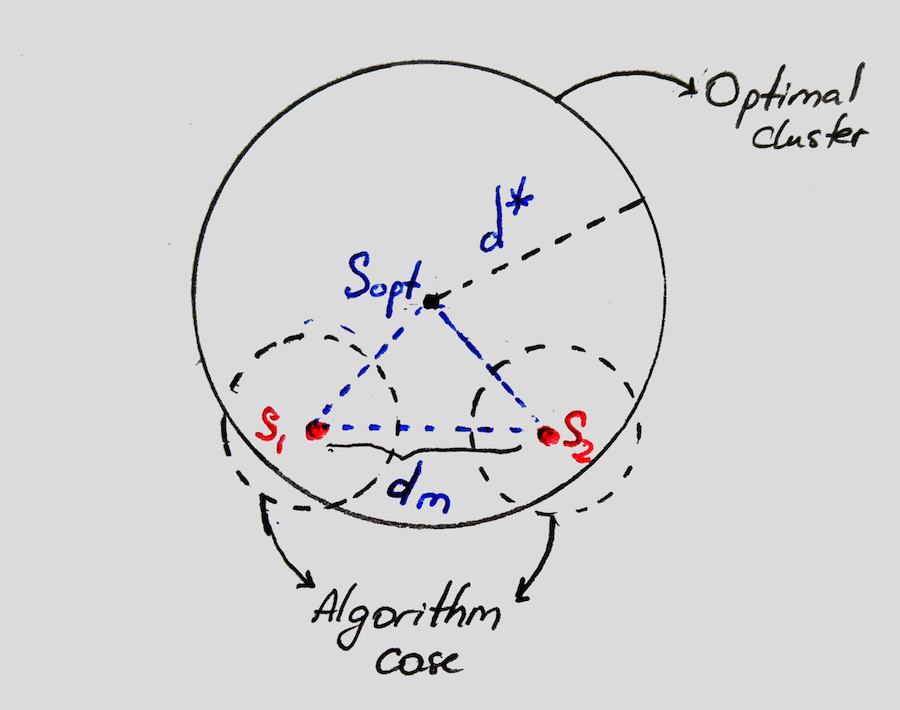 Optimal
cluster
d*
Sopt
S1
S2
dm
Algorithm
case